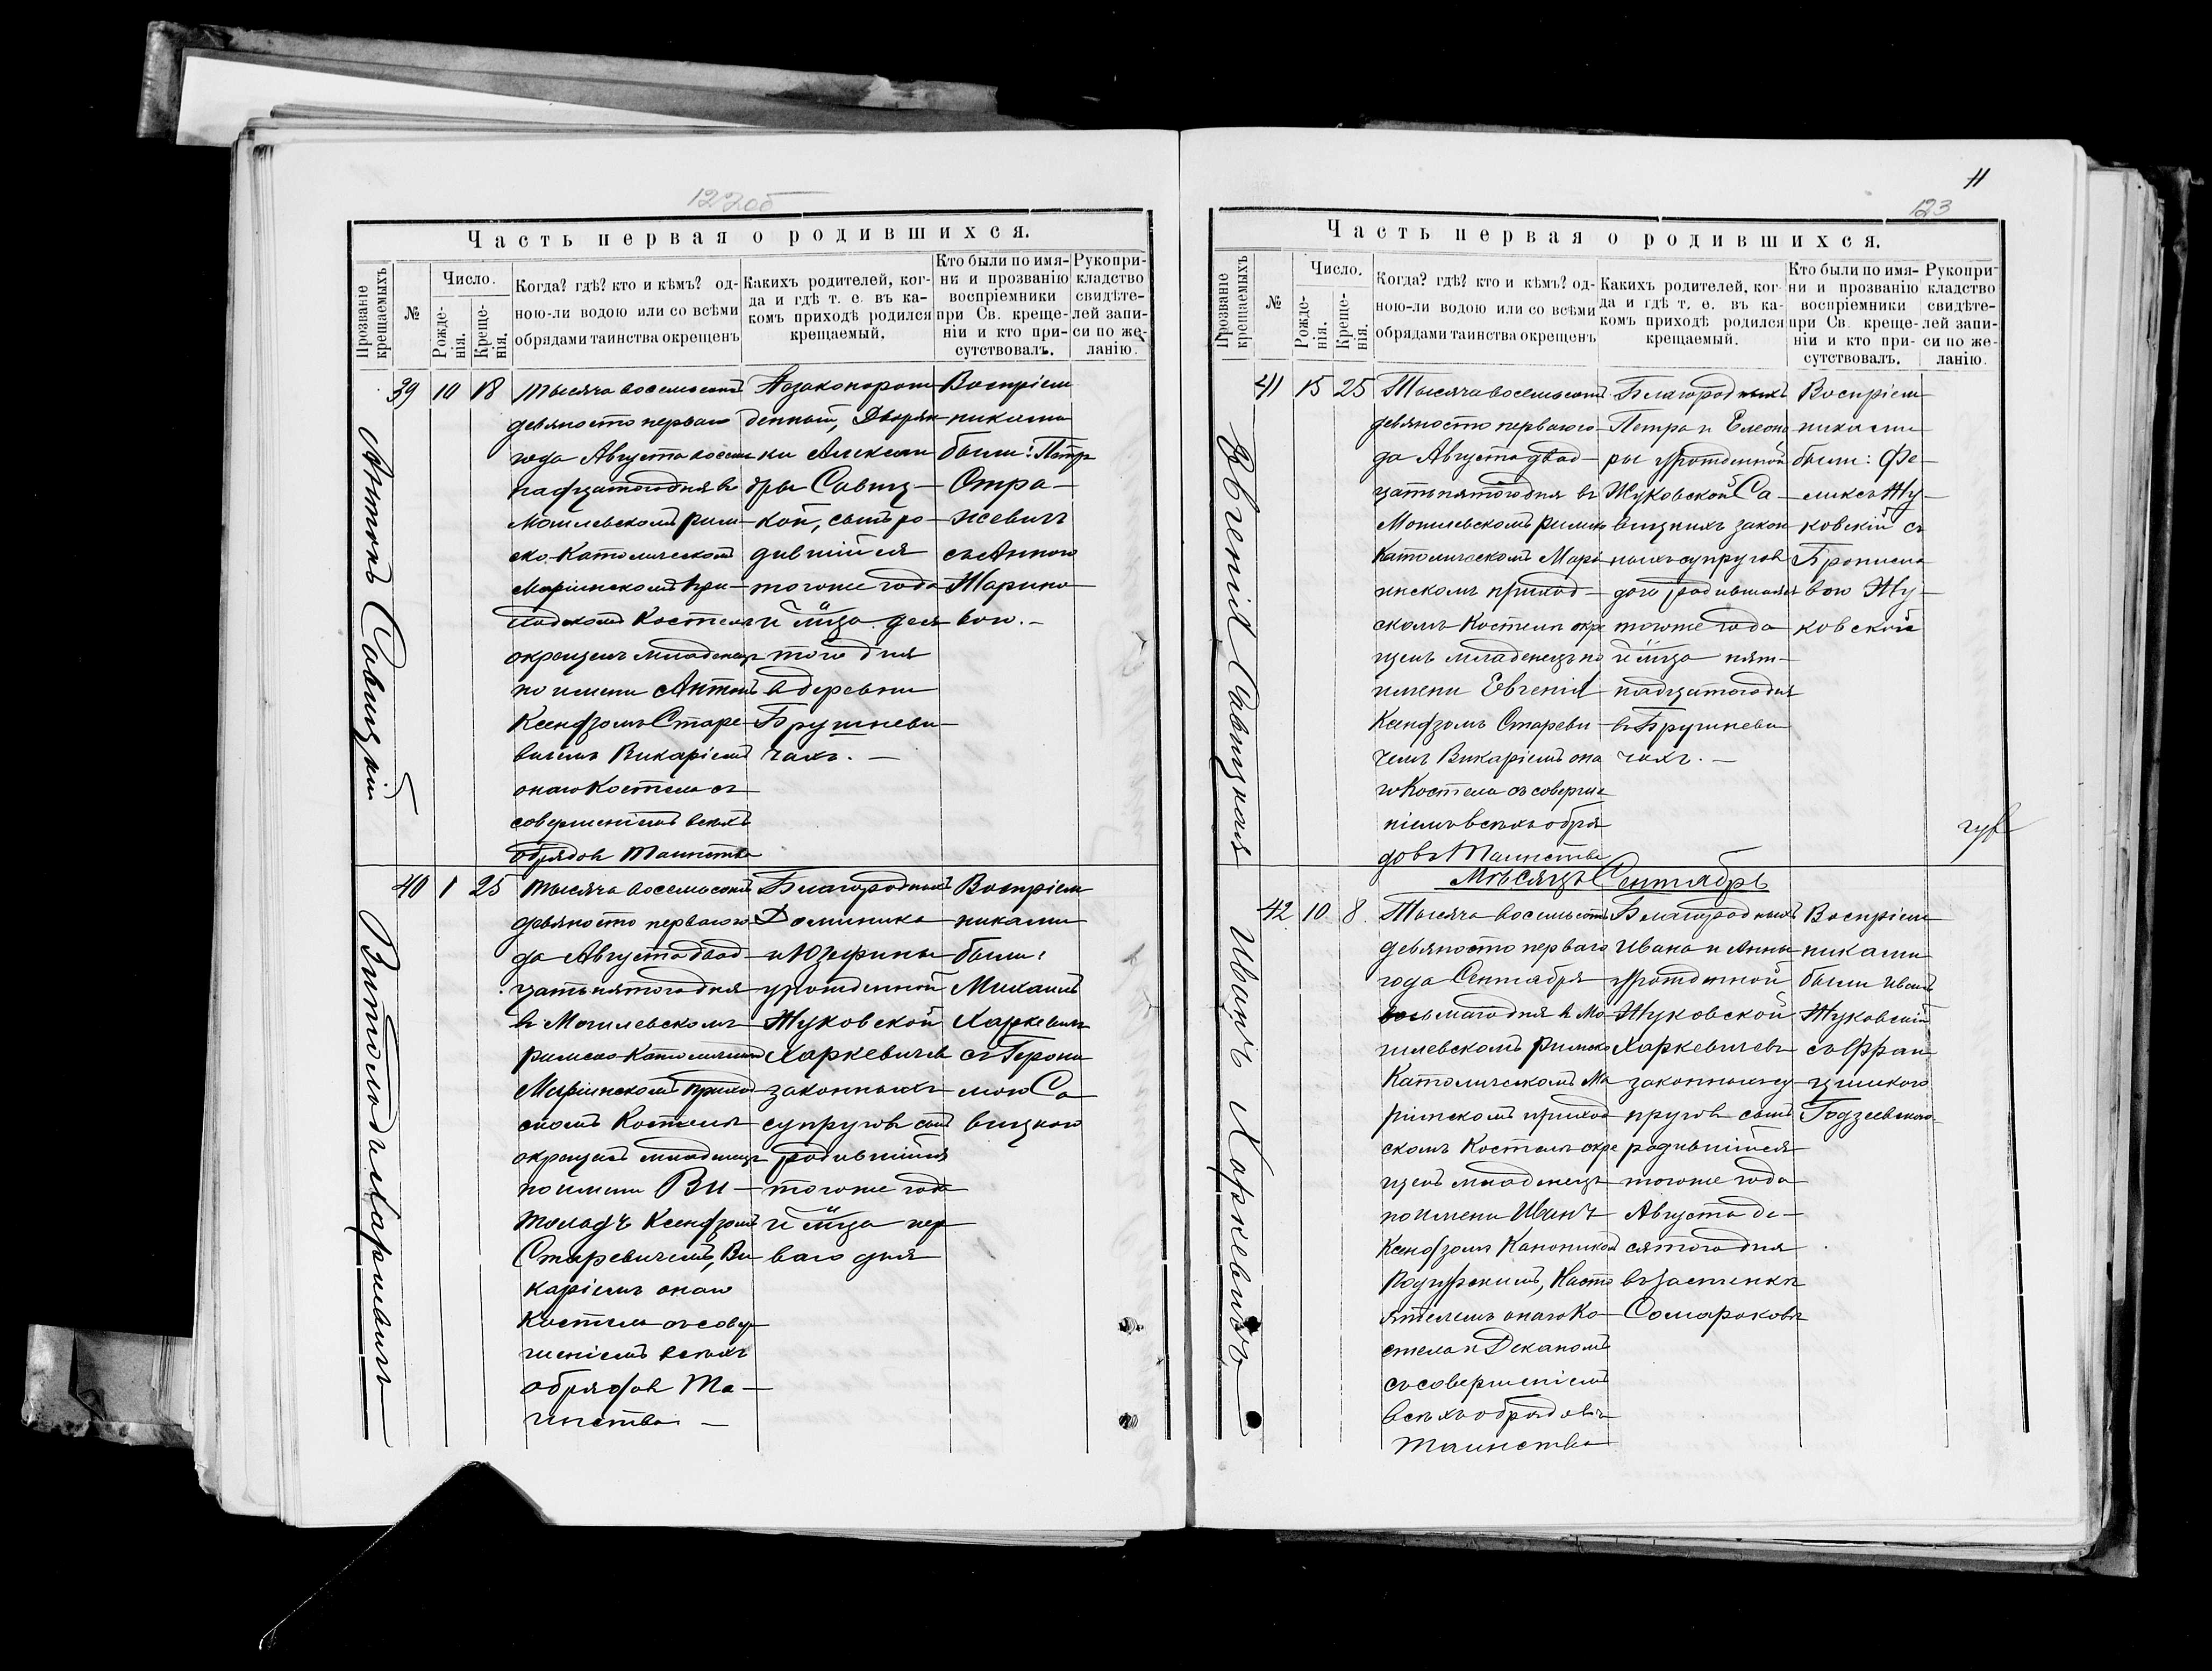 122об
Часть первая о родившихся.
Прозваніе крещаемыхъ
№
Число.
Рожде-
нія.
Креще-
нія.
Когда? гдѣ? кто и кѣмъ? од-
ною-ли водою или со всѣми
обрядами таинства окрещенъ
Какихъ родителей, ког-
да и гдѣ т. е. въ ка-
комъ приходѣ родился
крещаемый.
Кто были по имя-
ни и прозванію
воспріемники
при Св. креще-
ніи и кто при-
сутствовалъ.
Рукопри-
кладство
свидѣте-
лей запи-
си по же-
ланію.
Антонъ Савицкій
39 10 18
Тысяча восемьсотъ
девяносто перваго
года Августа восем
надцатаго дня въ
Могилевскомъ рим-
ско-Католическомъ
Маріинскомъ При-
ходскомъ Костелѣ
окрещенъ младенецъ
по имени Антонъ
Ксендзомъ Старе-
вичемъ Викаріемъ
онаго Костела съ
совершеніемъ всѣхъ
обрядовъ Таинства
Незаконорож
денный, Дворян
ки Алексан
дры Савиц-
кой, сынъ ро-
дившійся
того же года
и м-ца деся
того дня
въ деревни
Брушневи-
чахъ. —
Воспріем
никами
были: Петръ
Стра-
жевичъ
съ Анною
Жарино
вою. -
Витольдъ Харкевичъ
40 1 25
Тысяча восемьсотъ
девяносто перваго го
да Августа двад-
цать пятаго дня
въ Могилевскомъ
римско-Католическомъ
Маріинскомъ Приход
скомъ Костелѣ
окрещенъ младенецъ
по имени Ви-
тольдъ Ксендзомъ
Старевичемъ, Ви
каріемъ онаго
Костела съ совер
шеніемъ всѣхъ
обрядовъ Та-
инства —
Благородныхъ
Доминика
и Юзефины
урожденной
Жуковской
Харкевичей
законныхъ
супруговъ сынъ
родившійся
того же года
и м-ца пер
ваго дня
Воспріем
никами
были:
Михаилъ
Харкевичъ
съ Герони
мою Са
вицкою
11
123
Часть первая о родившихся.
Прозваніе крещаемыхъ
№
Число.
Рожде-
нія.
Креще-
нія.
Когда? гдѣ? кто и кѣмъ? од-
ною-ли водою или со всѣми
обрядами таинства окрещенъ
Какихъ родителей, ког-
да и гдѣ т. е. въ ка-
комъ приходѣ родился
крещаемый.
Кто были по имя-
ни и прозванію
воспріемники
при Св. креще-
ніи и кто при-
сутствовалъ.
Рукопри-
кладство
свидѣте-
лей запи-
си по же-
ланію.
Евгенія Савицкая
41 15 25
Тысяча восемьсотъ
девяносто перваго го-
да Августа двад-
цать пятаго дня въ
Могилевскомъ римско
Католическомъ Марі
инскомъ приход-
скомъ Костелѣ окре
щенъ младенецъ по
имени Евгенія
Ксендзомъ Стареви-
чемъ Викаріемъ она
го Костела съ соверше
ніемъ всѣхъ обря
довъ Таинства
Благородныхъ
Петра и Елеоно
ры урожденной
Жуковской Са-
вицкихъ закон
ныхъ супруговъ
дочь родившаяся
того же года
и м-ца пят-
надцатаго дня
въ Брушневи
чахъ. —
Воспріем
никами
были: Фе-
ликсъ Жу-
ковскій съ
Бронисла
вою Жу-
ковской
Мѣсяцъ Сентябрь
Иванъ Харкевичъ
42 10 8
Тысяча восемьсотъ
девяносто перваго
года Сентября
восьмаго дня въ Мо-
гилевскомъ Римско
Католическомъ Ма
ріинскомъ приход
скомъ Костелѣ окре
щенъ младенецъ
по имени Иванъ
Ксендзомъ Каноникомъ
Насто
ятелемъ онаго Ко-
стела и Деканомъ
съ совершеніемъ
всѣхъ обрядовъ
Таинства
Благородныхъ
Ивана и Анны
урожденной
Жуковской
Харкевичевъ
законныхъ су
пруговъ сынъ
родившійся
того же года
Августа де-
сятаго дня
въ застенкѣ
Сомароковѣ
Воспріем
никами
были Иванъ
Жуковскій
съ Фран
цишкою
Годзевскою